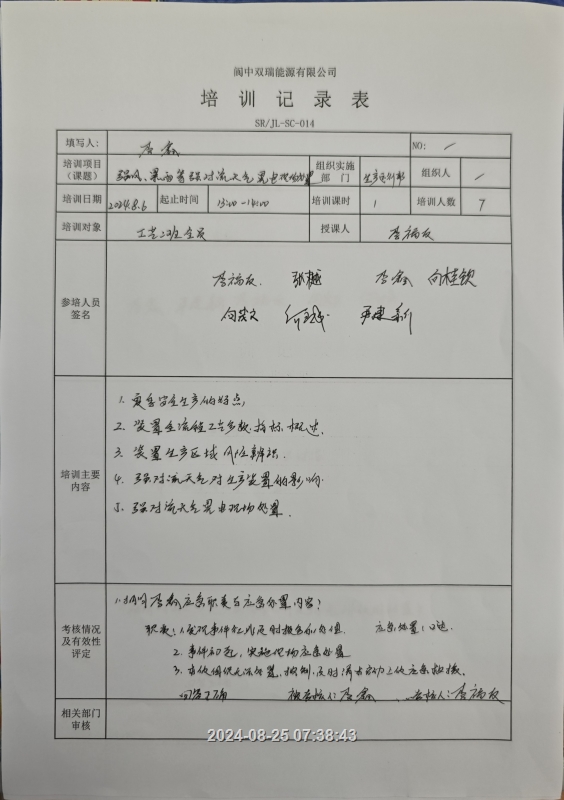 阆中双瑞能源有限公司
培训记录表
SR/JL-SC-014
填写人： 李鑫 NO： /
培训项目（课题） 强风、暴雨等强对流天气晃电现场处置 组织实施部门 生产运行部 组织人 /
培训日期 2024.8.6 起止时间 13:00-14:00 培训课时 1 培训人数 7
培训对象 工艺二班全员 授课人 李福友
参培人员签名
李福友 张樾 李鑫 向桂钦
培训主要内容
1. 夏季安全生产的特点，
2. 装置全流程工艺参数、指标、概述，
3. 装置生产区域风险辨识.
4. 强对流天气对生产装置的影响
5. 强对流天气晃电现场处置.
考核情况及有效性评定
1. 提问李鑫应急职责与应急处置内容？
职责：1.发现事件汇 及时报告和 应急处置：口述
2. 事件初起，实施现场应急处置
3. 应急救援.
回答正确 被考核人：李鑫 考核人：李福友
相关部门审核
2024-08-25 07:38:43